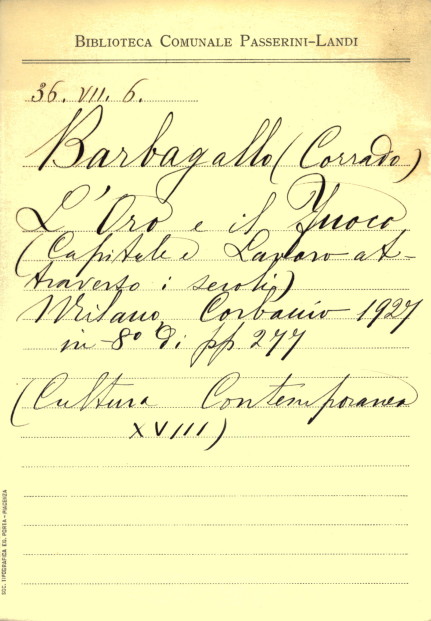 BIBLIOTECA COMUNALE PASSERINI-LANDI
36. VII. 6.
Barbagallo (Corrado)
L'Oro e il Fuoco
(Capitale e Lavoro at-
traverso i secoli)
Milano Corbaccio 1927
in-8º di pp. 277
(Cultura Contemporanea
XVIII)
SOC. TIPOGRAFICA ED. PORTA - PIACENZA